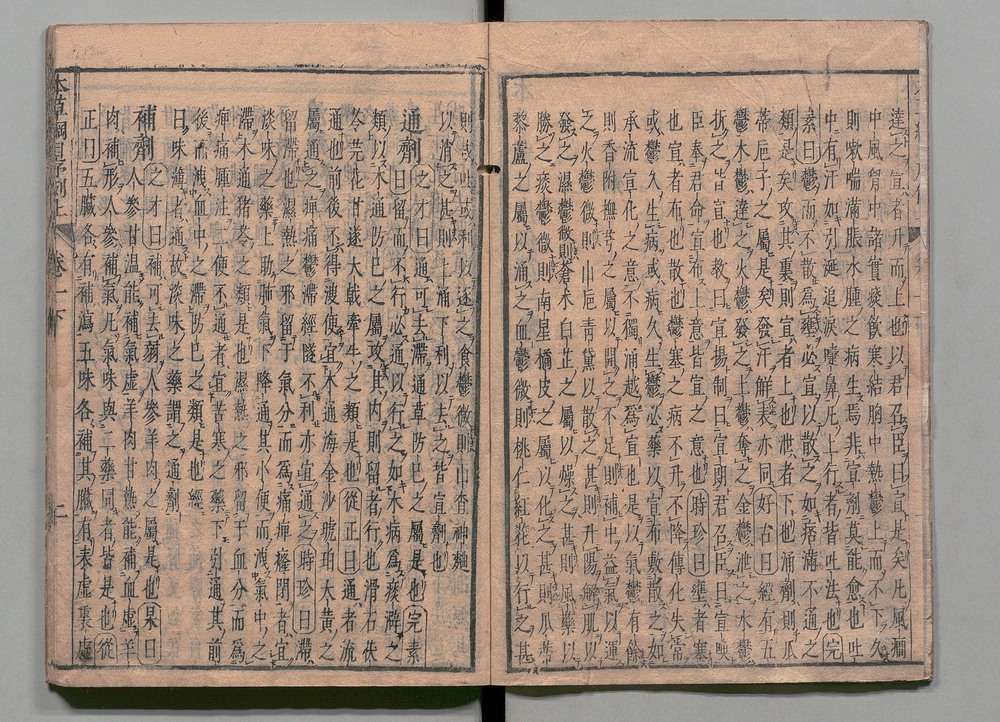 達之宣者升而上也以君召臣曰宣是矣凡風癇
中風胷中諸實痰飲寒結胸中熱鬱上而不下久
則嗽喘滿脹水腫之病生焉非宣劑莫能愈也吐
中有汗如引涎追淚嚏鼻凡上行者皆吐法也完
素曰鬱而不散爲壅必宣以散之如痞滿不通之
類是矣攻其裏則宣者上也泄者下也涌劑則瓜
蒂巵子之屬是矣發汗解表亦同好古曰經有五
鬱木鬱達之火鬱發之土鬱奪之金鬱泄之水鬱
折之皆宣也教曰宣揚制曰宣朗君召臣曰宣喚
臣奉君命宣布上意皆宣之意也時珍曰壅者塞
也宣者布也散也鬱塞之病不升不降傳化失常
或鬱久生病或病久生鬱必藥以宣布敷散之如
承流宣化之意不獨涌越爲宣也是以氣鬱有餘
則香附撫芎之屬以開之不足則補中益氣以運
之火鬱微則山巵青黛以散之甚則升陽解肌以
發之濕鬱微則蒼朮白芷之屬以燥之甚則風藥以
勝之痰鬱微則南星橘皮之屬以化之甚則瓜蒂
黎蘆之屬以涌之血鬱微則桃仁紅花以行之甚
則或吐或利以逐之食鬱微則山査神麴
以消之甚則上涌下利以去之皆宣劑也
通劑之才曰通可去滯通草防已之屬是也完素
曰留而不行必通以行之如水病爲痰澼之
類以木通防已之屬攻其内則留者行也滑石茯
苓芫花甘遂大戟牽牛之類是也從正曰通者流
通也前後不得溲便宜木通海金沙琥珀大黃之
屬通之痺痛鬱滯經隧不利亦宜通之時珍曰滯
留滯也濕熱之邪留于氣分而爲痛痺癃閉者宜
淡味之藥上助肺氣下降通其小便而洩氣中之
滯木通猪苓之類是也濕熱之邪留于血分而爲
痺痛腫注二便不通者宜苦寒之藥下引通其前
後而洩血中之滯防已之類是也經
曰味薄者通故淡味之藥謂之通劑
補劑之才曰補可去弱人參羊肉之屬是也杲曰
人參甘溫能補氣虛羊肉甘熱能補血虛羊
肉補形人參補氣凡氣味與二藥同者皆是也從
正曰五臟各有補瀉五味各補其臟有表虛裏虛
本草綱目序例上 卷一下